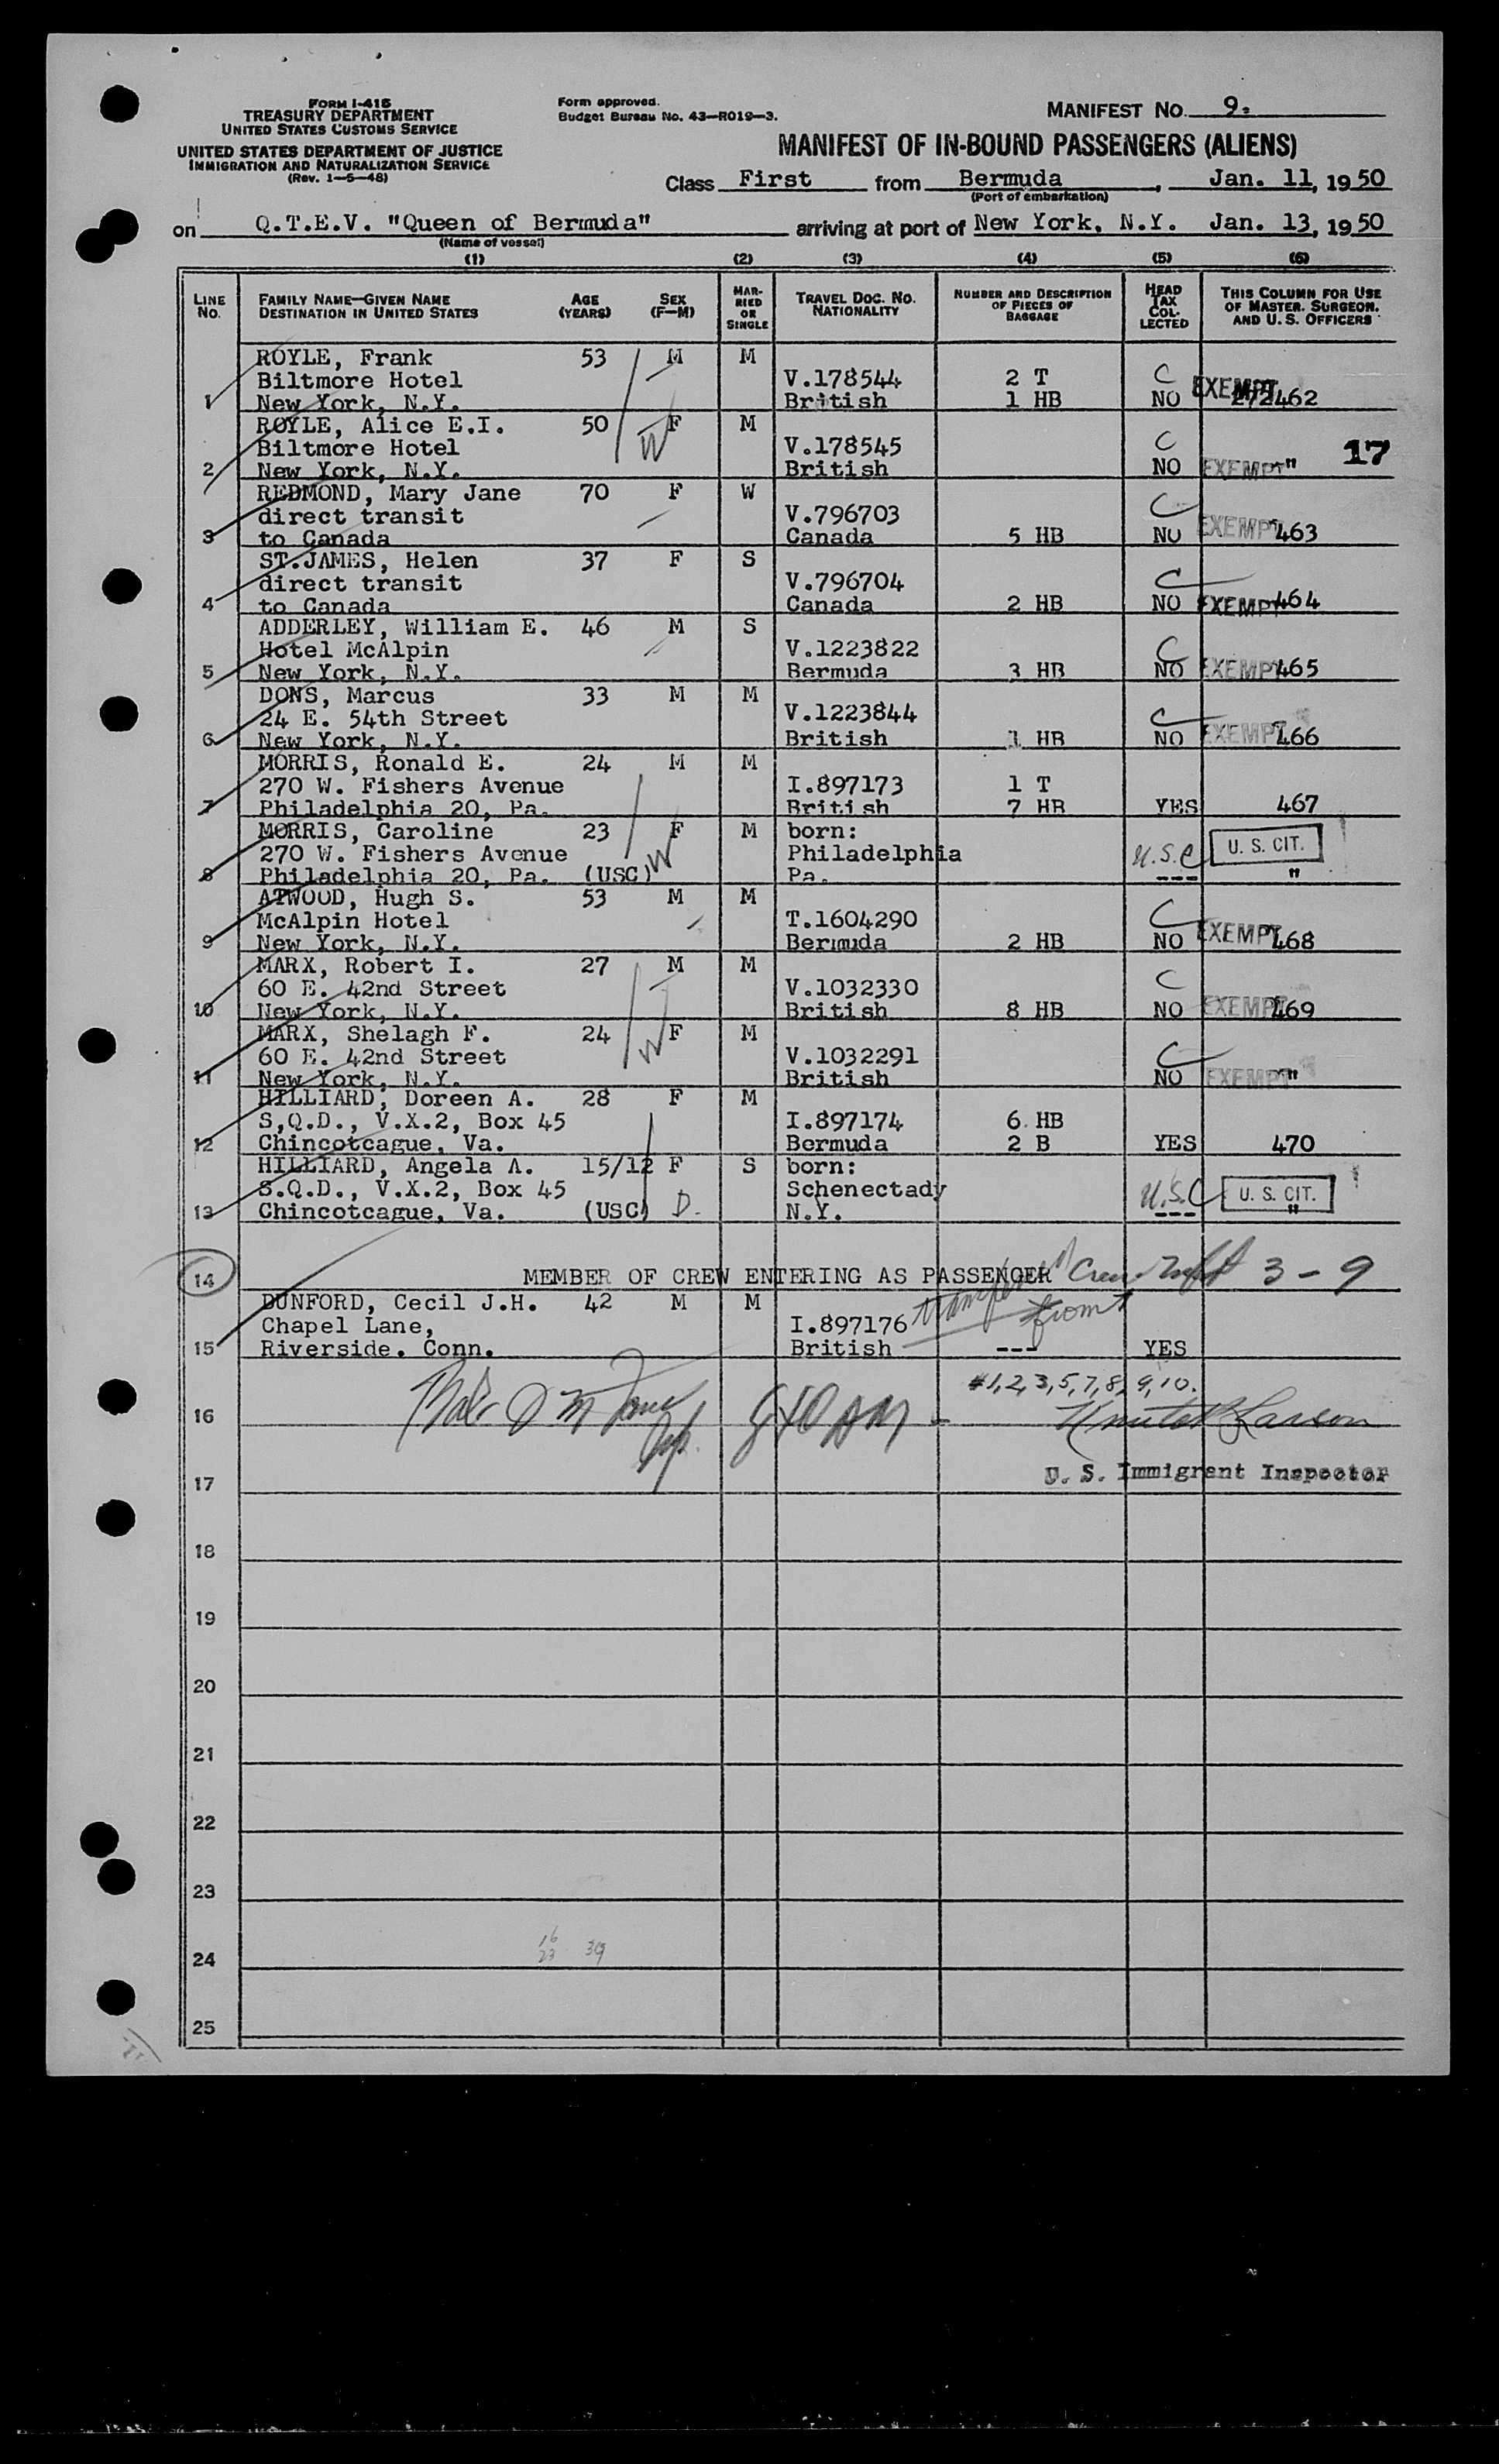 FORM I-415
TREASURY DEPARTMENT
UNITED STATES CUSTOMS SERVICE
UNITED STATES DEPARTMENT OF JUSTICE
IMMIGRATION AND NATURALIZATION SERVICE
(Rev. 1-5-48)
Form approved.
Budget Bureau No. 43-R019-3.
MANIFEST NO. 9.
MANIFEST OF IN-BOUND PASSENGERS (ALIENS)
Class First from Bermuda, Jan. 11, 1950
(Port of embarkation)
on Q.T.E.V. "Queen of Bermuda" arriving at port of New York, N.Y. Jan. 13, 1950
(Name of vessel)
(1) (2) (3) (4) (5) (6)
LINE NO. FAMILY NAME—GIVEN NAME DESTINATION IN UNITED STATES AGE (YEARS) SEX (F—M) MARRIED OR SINGLE TRAVEL DOC. NO. NATIONALITY NUMBER AND DESCRIPTION OF PIECES OF BAGGAGE HEAD TAX COLLECTED THIS COLUMN FOR USE OF MASTER, SURGEON, AND U. S. OFFICERS
ROYLE, Frank 53 M M
Biltmore Hotel V.178544 2 T C EXEMPT
1 New York, N.Y. British 1 HB NO 272462
ROYLE, Alice E.I. 50 F M
Biltmore Hotel W V.178545 C 17
2 New York, N.Y. British NO EXEMPT "
REDMOND, Mary Jane 70 F W
direct transit V.796703 C
3 to Canada Canada 5 HB NO EXEMPT 463
ST.JAMES, Helen 37 F S
direct transit V.796704 C
4 to Canada Canada 2 HB NO EXEMPT 464
ADDERLEY, William E. 46 M S
Hotel McAlpin V.1223822 C
5 New York, N.Y. Bermuda 3 HB NO EXEMPT 465
DONS, Marcus 33 M M
24 E. 54th Street V.1223844 C
6 New York, N.Y. British 1 HB NO EXEMPT 466
MORRIS, Ronald E. 24 M M
270 W. Fishers Avenue I.897173 1 T
7 Philadelphia 20, Pa. British 7 HB YES 467
MORRIS, Caroline 23 F M born:
270 W. Fishers Avenue W Philadelphia U.S.C U. S. CIT.
8 Philadelphia 20, Pa. (USC) Pa. --- "
ATWOOD, Hugh S. 53 M M
McAlpin Hotel T.1604290 C
9 New York, N.Y. Bermuda 2 HB NO EXEMPT 468
MARX, Robert I. 27 M M
60 E. 42nd Street V.1032330 C
10 New York, N.Y. British 8 HB NO EXEMPT 469
MARX, Shelagh F. 24 F M
60 E. 42nd Street W V.1032291 C
11 New York, N.Y. British NO EXEMPT "
HILLIARD, Doreen A. 28 F M
S,Q.D., V.X.2, Box 45 I.897174 6 HB
12 Chincotcague, Va. Bermuda 2 B YES 470
HILLIARD, Angela A. 15/12 F S born:
S.Q.D., V.X.2, Box 45 Schenectady U.S.C U. S. CIT.
13 Chincotcague, Va. (USC) D. N.Y. --- "
14 MEMBER OF CREW ENTERING AS PASSENGER Crew 3 - 9
DUNFORD, Cecil J.H. 42 M M from
Chapel Lane, I.897176
15 Riverside. Conn. British --- YES
#1,2,3,5,7,8,9,10.
16 840 AM -
17 U. S. Immigrant Inspector
18
19
20
21
22
23
16
23 39
24
25